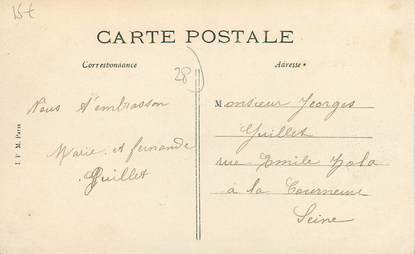 15+
CARTE POSTALE
Correspondance
Adresse
28
Nous t'embrasson
Marie et fernande
Guillet
Monsieur Georges
Guillet
rue Emile Zola
a la Courneuve
Seine
I. P. M. Paris